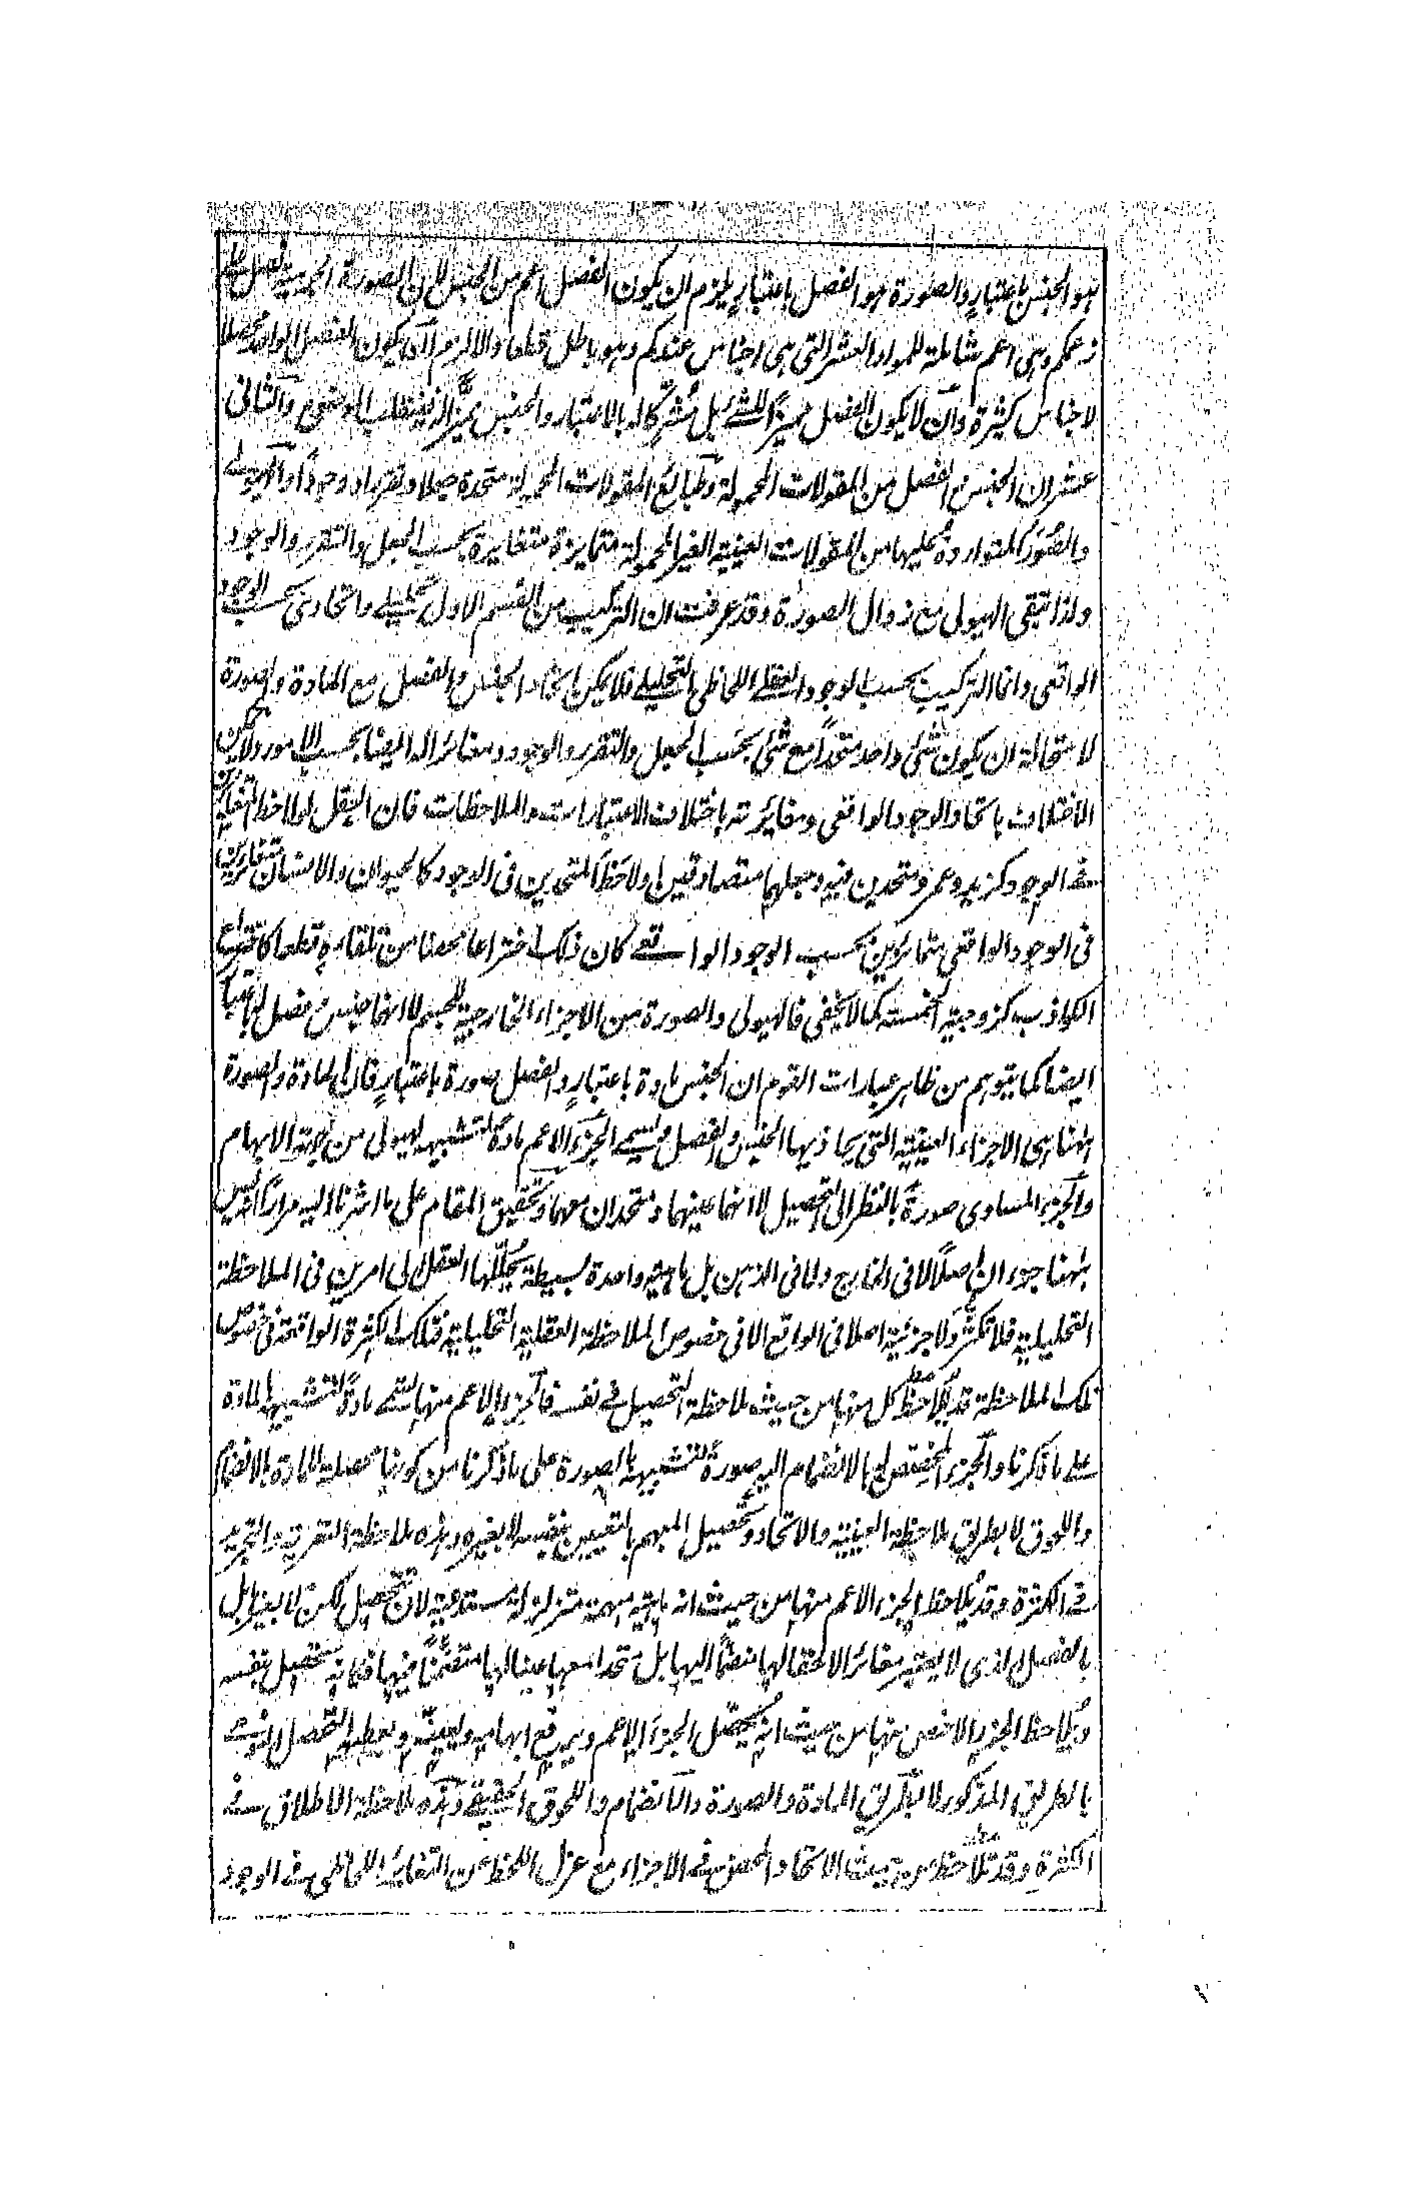 هو الجنس باعتبار والصورة هو الفصل باعتبار يلزم ان يكون الفصل اعم من الجنس لان الصورة الجرمية فصل على
زعمكم وهى اعم شاملة للمواد العشر التى هى اجناس عندكم وهو باطل قطعا والا لزم ان يكون الفصل الواحد محصلا
لاجناس كثيرة وان لا يكون الفصل مميزا للشئ بل مشتركا له بالاعتبار والجنس مميزا له فينقلب الموضوع والثانى
عشر ان الجنس مع الفصل من المقولات المحمولة وطبائع المقولات المحمولة متحدة جعلا وتقررا ووجودا والهيولے
والصور المتواردة عليها من المقولات العينية الغير المحمولة متمايزة متغايرة بحسب الجعل والتقرر والوجود
ولذا تبقى الهيولى مع زوال الصورة وقد عرفت ان التركيب من القسم الاول تحليلے واتحادى بحسب الوجود
الواقعى وانما التركيب بحسب الوجود العقلے اللحاظى التحليلے فلا يمكن اتحاد الجنس والفصل مع المادة والصورة
لاستحالة ان يكون شئ واحد متحدا مع شئ بحسب الجعل والتقرر والوجود ومغائرا له ايضا بحسب الامور ولا يمكن
الاختلاف باتحاد الوجود الواقعى ومغايرته باختلاف الاعتبارات والملاحظات فان العقل لو لاحظ المتغايرين
فے الوجود كزيد وعمرو متحدين فيه وجعلهما متصادقين او لاحظ المتحدين فى الوجود كالحيوان والانسان متغايرين
فى الوجود الواقعى متمايزين بحسب الوجود الواقعے كان ذلك اختراعا محضا من تلقائه قطعا كاختراع
الكواذب كزوجية الخمسة كما لا يخفى فالهيولى والصورة من الاجزاء الخارجية للجسم لا انهما جنس وفصل لها
ايضا كما يتوهم من ظاهر عبارات القوم ان الجنس مادة باعتبار والفصل صورة باعتبار فان المادة والصورة
ههنا هى الاجزاء العينية التى يحاذيها الجنس والفصل ويسمے الجزء الاعم مادة لتشبهه الهيولى من جهة الابهام
والجزء المساوى صورة بالنظر الى التحصيل لا انهما عينهما ومتحدان معهما وتحقيق المقام على ما اشرنا اليه مرارا ان ليس
ههنا جزءان اصلا لا فى الخارج ولا فى الذهن بل ماهية واحدة بسيطة يحللها العقل الى امرين فى الملاحظة
التحليلية فلا تكثر ولا جزئية اصلا فى الواقع الا فى خصوص الملاحظة العقلية التحليلية فتلك الكثرة الواقعة فى خصوص
تلك الملاحظة قد يلاحظ كل منها من حيث ملاحظة التحصيل فے نفسه فالجزء الاعم منها يسمے مادة لتشبهه المادة
علے ما ذكرنا والجزء المختص به بالانضمام اليه صورة لتشبهه بالصورة على ما ذكرنا من كونها محصلة للمادة بالانضمام
واللحوق لا بطريق ملاحظة العينية والاتحاد وتحصيل المبهم بالتعيين بنفسه لا بغيره وهذه ملاحظة التفرقة والتجريد
فے الكثرة وقد يلاحظ الجزء الاعم منها من حيث انه ماهية مبهمة متزلزلة مستدعية لان تتحصل لكن لا بغير بل
بالفصل الذى لا يعتبر مغائرا لاحقا لها منضما اليها بل متحدا معها عينا لها متضمنا فيها فكانه تحصيل بنفسه
ويلاحظ الجزء الاخص منها من حيث انه يحصل الجزء الاعم ويرفع ابهامه ويعينه ويعطيه التحصل النوعے
بالطريق المذكور لا بطريق المادة والصورة والانضمام واللحوق الحقيقے وهذه ملاحظة الاطلاق فے
الكثرة وقد تلاحظ من حيث الاتحاد المحض فے الاجزاء مع عزل اللحظ عن التغاير اللحاظى فے الوجود